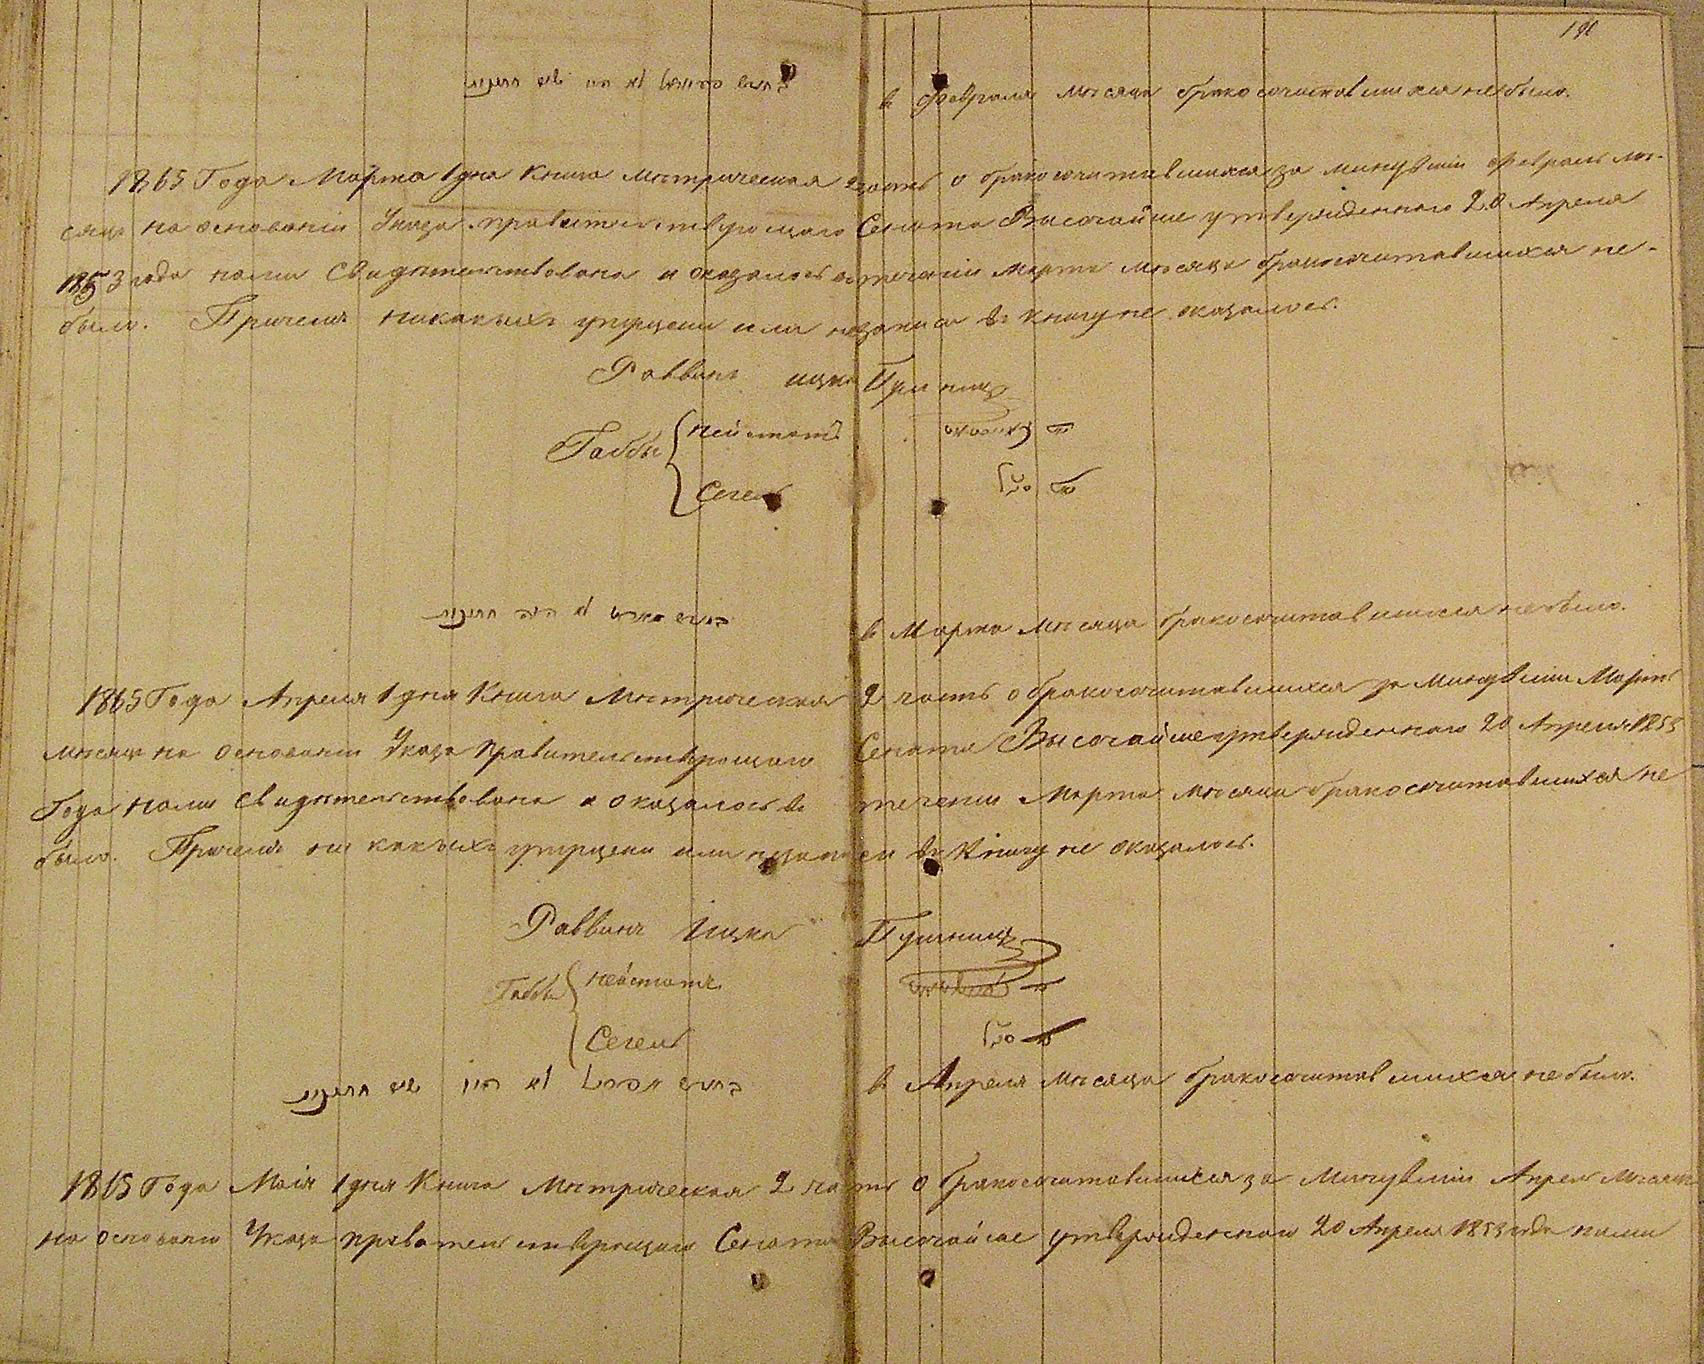 190
בחודש פעווראל לא היו שום חתונות
в Февраля мѣсяца бракосочитавшихся небыло.
1865 Года Марта 1 дня Книга Метрическая 2 часть о бракосочитавшихся за минувши Февраль мѣ-
сяць на основаніи Указа правительствующаго Сената Высочайше утвержденнаго 20 Апреля
1853 года нами свидѣтельствована и оказалось въ течаніи Марта мѣсяца бракосочитавшихся не-
было. Причемъ никакихъ упущени или незаписи въ книгу не оказалось.
Раввинъ ицка Гурлинц
Габбы Нейштатъ
Сегель סגל
בחודש מארט לא היה חתונות
в Марта мѣсяца бракосочитавшихся небыло.
1865 Года Апреля 1 дня Книга Мѣтрическая 2 часть о бракосочитавшихся за минувши Мартъ
мѣсяць на основаніи Указа Правительствующаго Сената Высочайше утвержденнаго 20 Апреля 1853
Года нами свидѣтельствована и оказалось въ течении Марта мѣсяца бракосочитавшихся не
было. Причемъ ни какихъ упущени или незаписи въ Книгу не оказалось.
Раввинъ Ицка
Габбы Нейштатъ
Сегель סגל
בחודש אפריל לא היו שום חתונות
в Апреля мѣсяца бракосочитавшихся небыло.
1865 Года Маія 1 дня Книга Мѣтрическая 2 часть о бракосочитавшихся за Минувши Апрель Мѣсяць
на основаніи Указа правительствующаго Сената Высочайше утвержденнаго 20 Апреля 1853 года нами